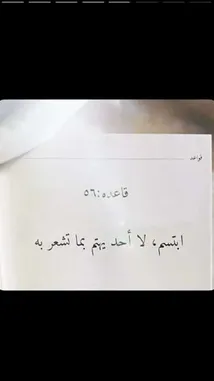 قواعد
قاعدة:٥٦
ابتسم، لا أحد يهتم بما تشعر به